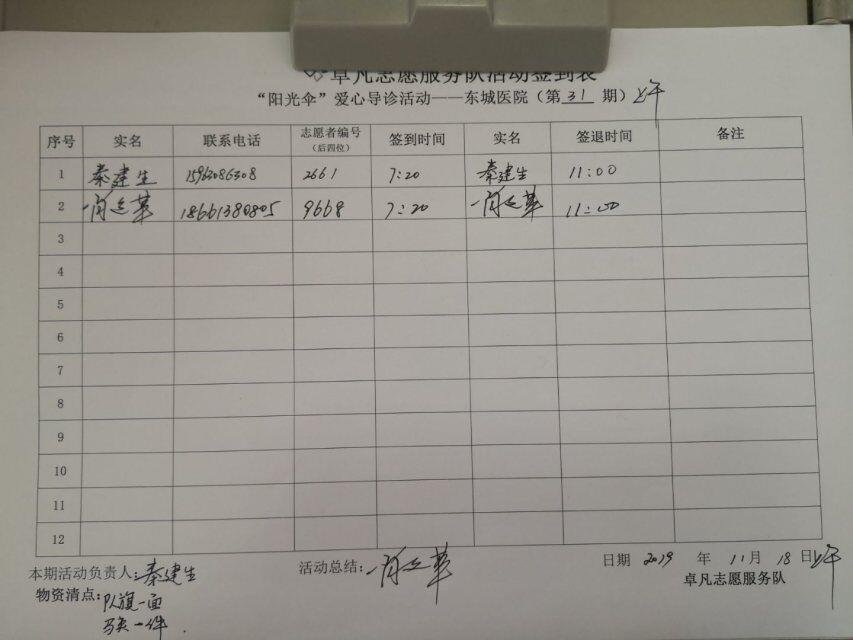 卓凡志愿服务队活动签到表
“阳光伞”爱心导诊活动——东城医院（第 31 期）上午
序号 实名 联系电话 志愿者编号（后四位） 签到时间 实名 签退时间 备注
1 秦建生 15963086308 2661 7:20 秦建生 11:00
2 18661380805 9668 7:20 11:00
3
4
5
6
7
8
9
10
11
12
本期活动负责人：秦建生 活动总结： 日期 2019 年 11月 18日上午
物资清点：队旗一面 卓凡志愿服务队
马夹一件.